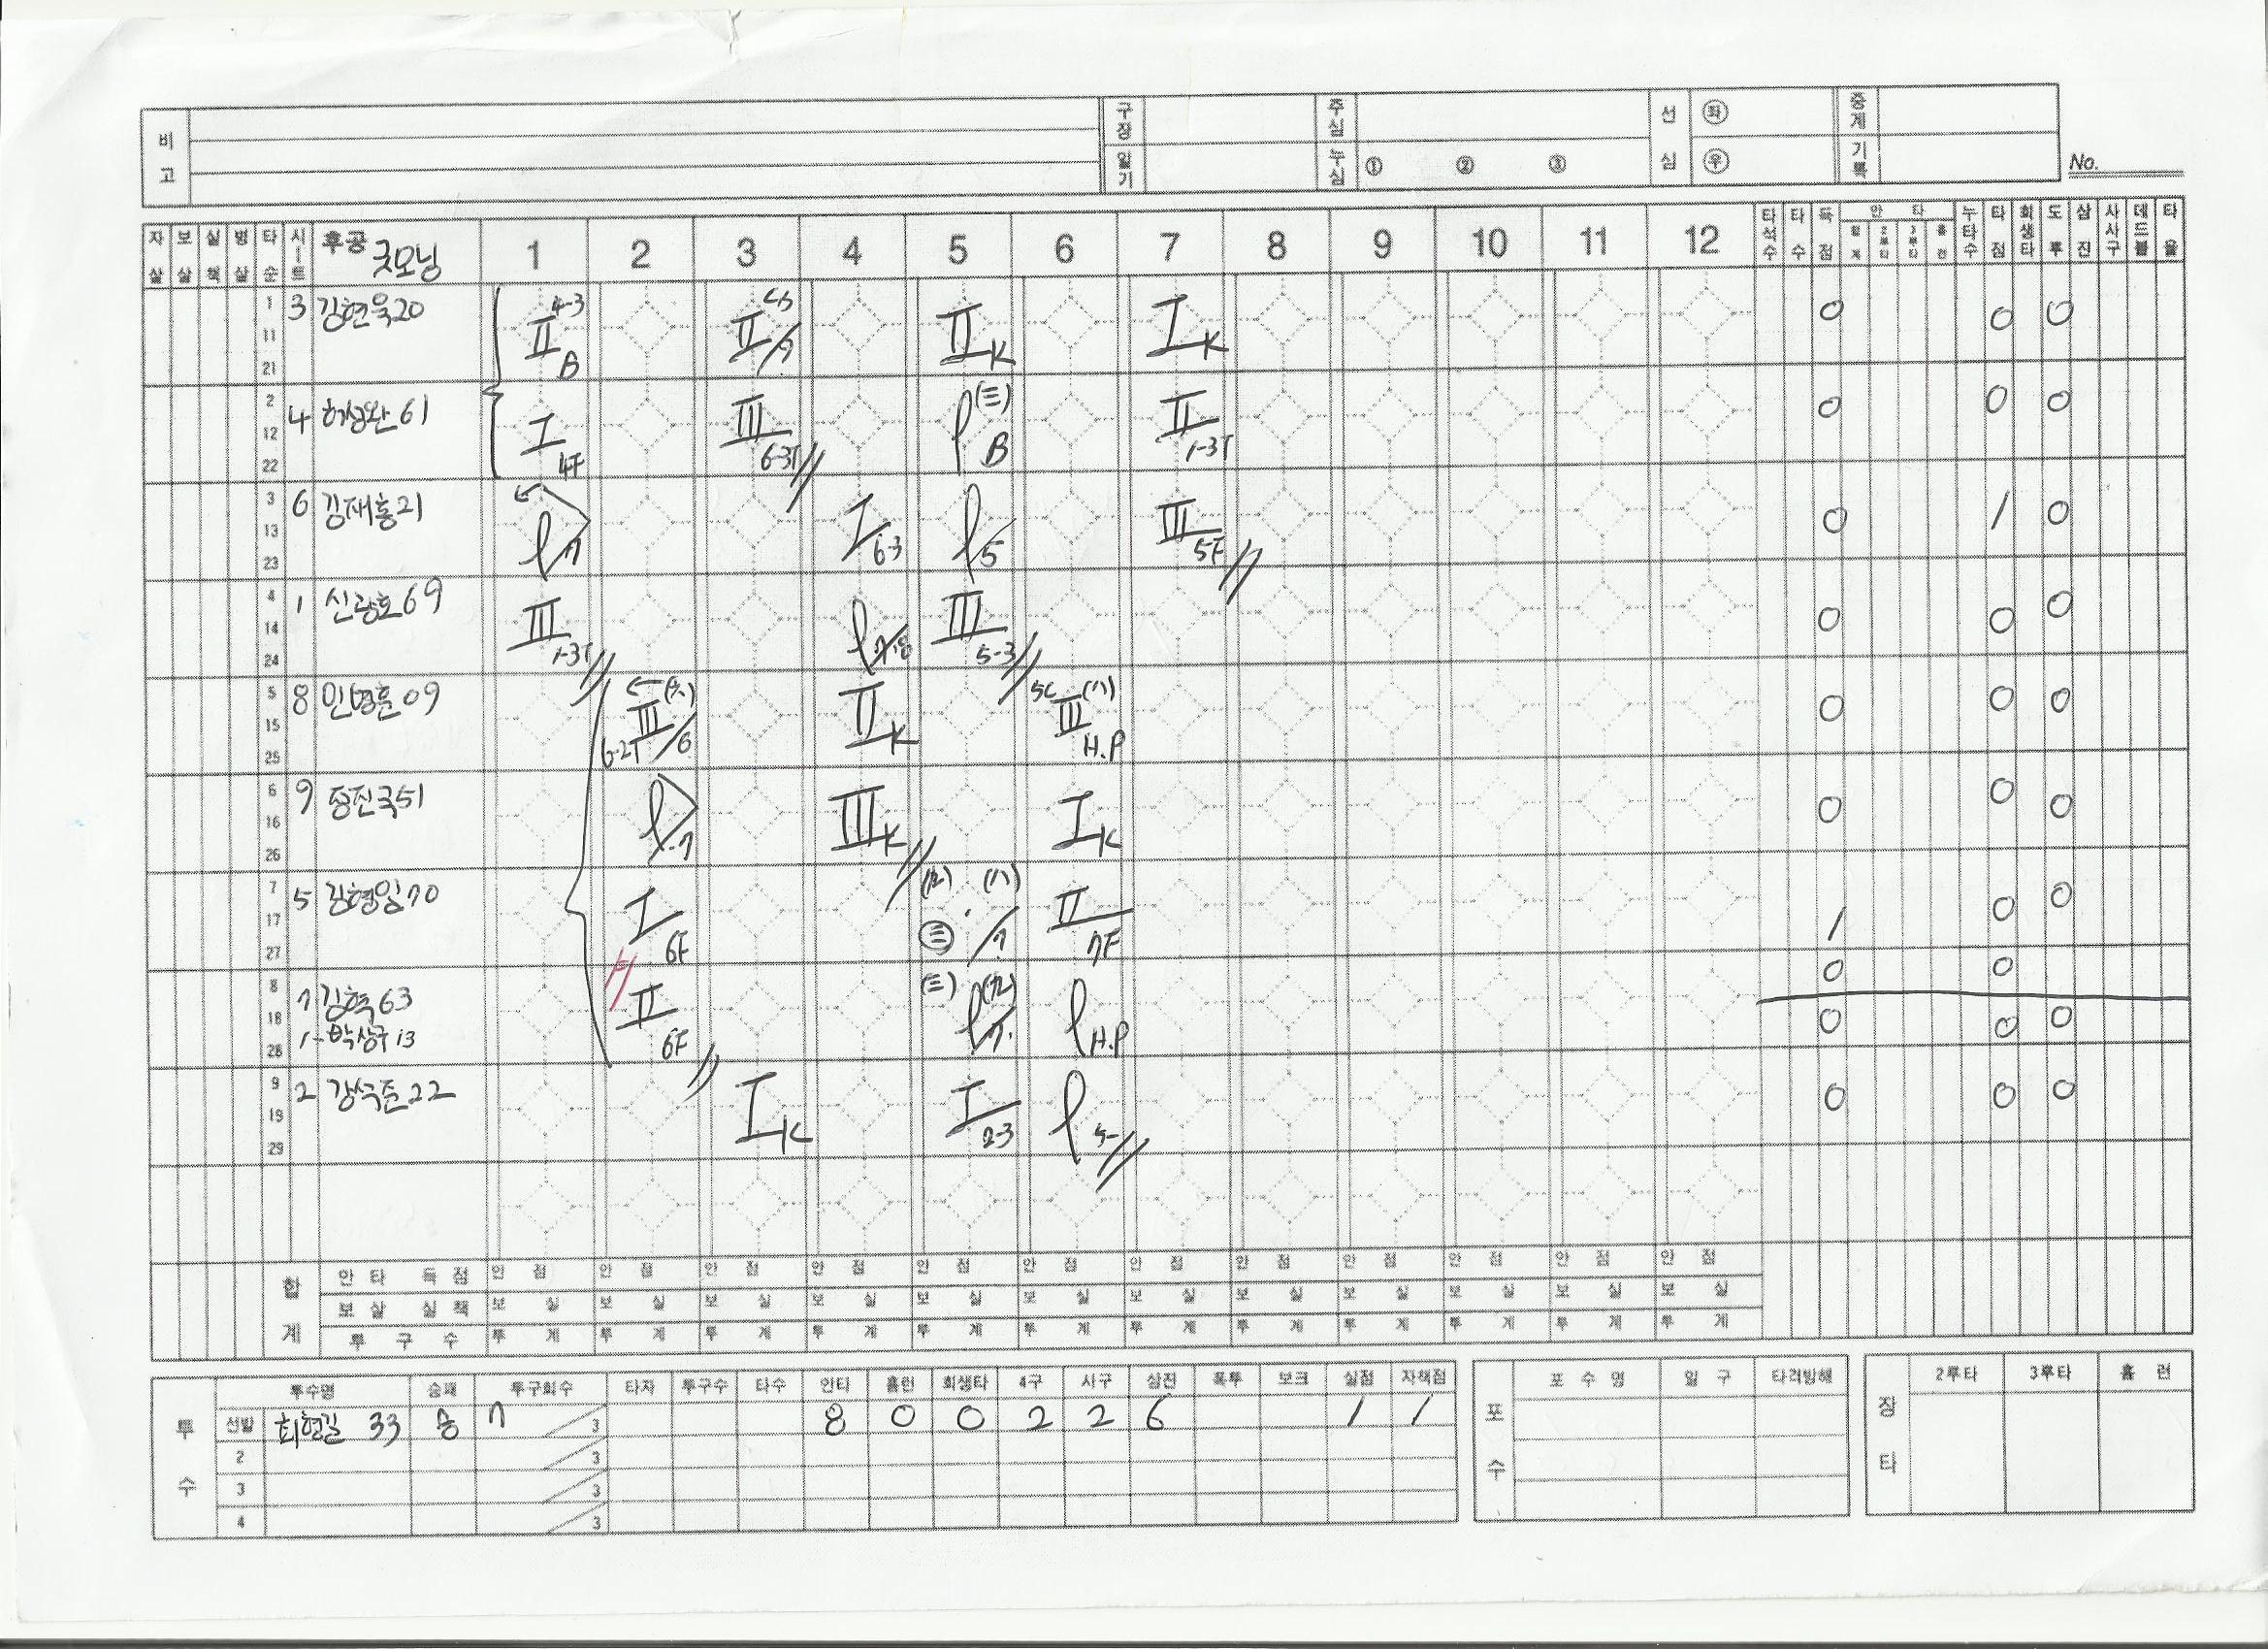 비고
구장
일기
주심
누심 ① ② ③
선심 좌 우
중계
기록
No.
자살 보살 실책 병살 타순 시트 후공 굿모닝 1 2 3 4 5 6 7 8 9 10 11 12 타석수 타수 득점 안타 합계 2루타 3루타 홈런 누타수 타점 회생타 도루 삼진 사사구 데드볼 타율
1 11 21 3 김현욱20 4-3 II B II /7 II K I K 0 0 0
2 12 22 4 허성완61 I 4F III 6-3T (三) B II 1-3T 0 0 0
3 13 23 6 김재홍21 l /7 I 6-3 l /5 III 5F 0 1 0
4 14 24 1 신광호69 III 1-3T l 7.8 III 5-3 0 0 0
5 15 25 8 민병훈09 6-2T III /6 II K III H.P 0 0 0
6 16 26 9 정진국51 l 7 III K I K 0 0 0
7 17 27 5 김형임70 I 6F /7 II 7F 1 0 0
8 18 28 7 김혁63 II 6F (三) l 7 l H.P 0 0
1-박상규13 0 0 0
9 19 29 2 강석준22 I K I 2-3 l 5- 0 0 0
합계
안타 득점 안 점 안 점 안 점 안 점 안 점 안 점 안 점 안 점 안 점 안 점 안 점 안 점
보살 실책 보 실 보 실 보 실 보 실 보 실 보 실 보 실 보 실 보 실 보 실 보 실 보 실
투구수 투 계 투 계 투 계 투 계 투 계 투 계 투 계 투 계 투 계 투 계 투 계 투 계
투수 투수명 승패 투구회수 타자 투구수 타수 안타 홈런 회생타 4구 사구 삼진 폭투 보크 실점 자책점
선발 최형길 33 승 7 /3 8 0 0 2 2 6 1 1
2 /3
3 /3
4 /3
포수 포수명 일구 타격방해
장타 2루타 3루타 홈런